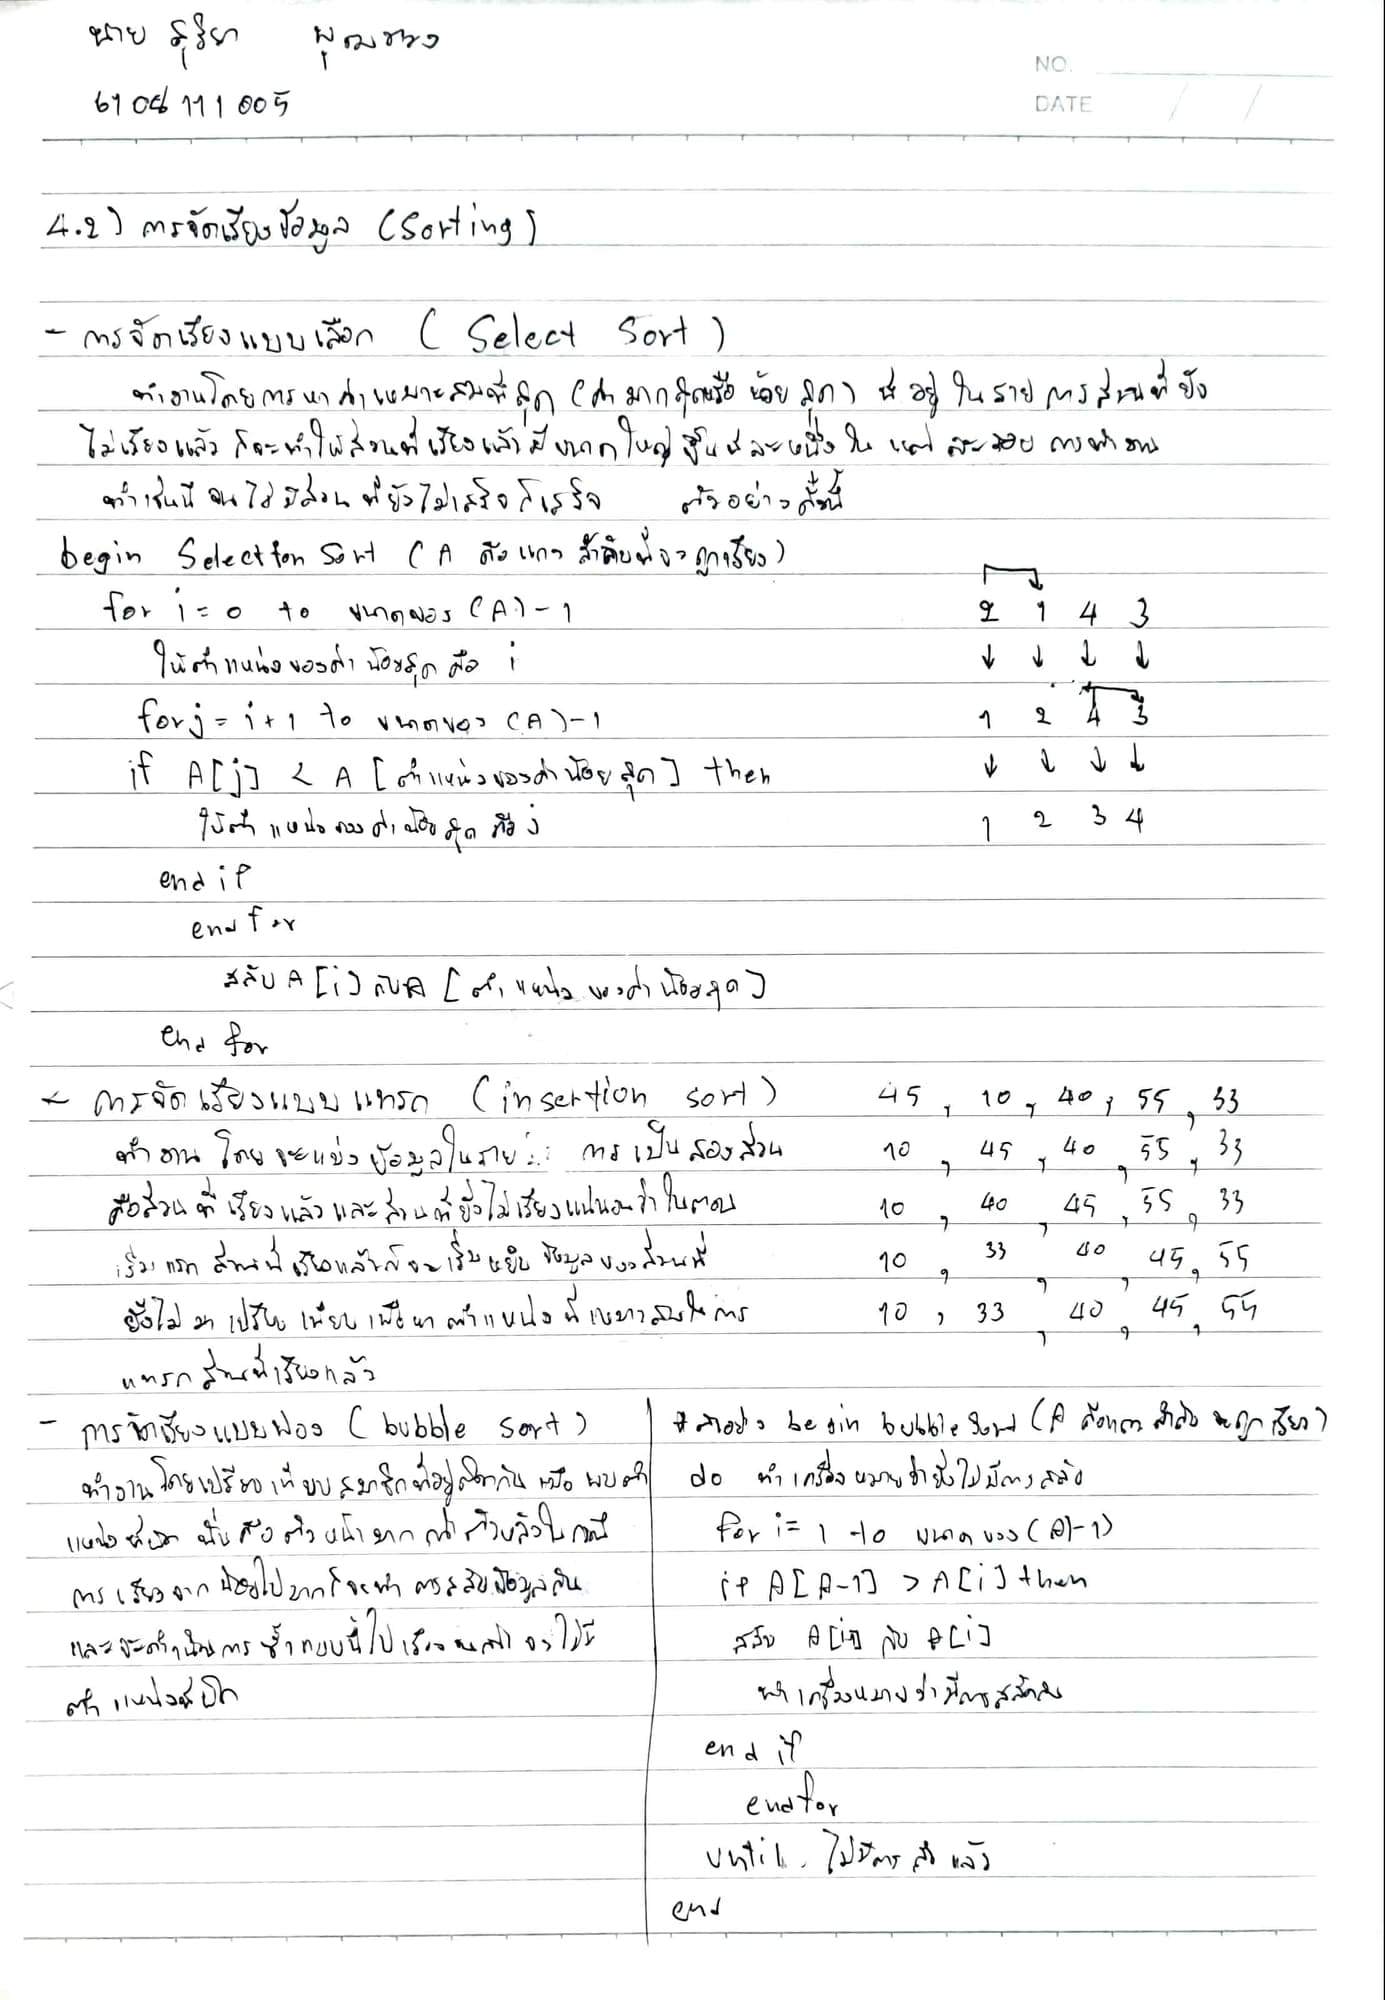 นาย สุริยา
6108111005
NO.
DATE
4.2) การจัดเรียงข้อมูล (Sorting)
- การจัดเรียงแบบเลือก ( Select Sort )
ทำงานโดยการหาค่าเหมาะสมที่สุด (ค่ามากสุดหรือ น้อยสุด) ที่อยู่ในรายการส่วนที่ยัง
ไม่เรียงแล้ว ก็จะทำให้ส่วนที่เรียงแล้วมีขนาดใหญ่ขึ้นทีละหนึ่งใน แต่ละรอบ การทำงาน
ทำเช่นนี้ จนไม่มีส่วนที่ยังไม่เสร็จก็เสร็จ ตัวอย่างดังนี้
begin Selection Sort (A คือ แถวลำดับที่จะถูกเรียง)
for i = 0 to ขนาดของ (A) - 1
ให้ตำแหน่งของค่าน้อยสุด คือ i
for j = i + 1 to ขนาดของ (A) - 1
if A[j] < A [ตำแหน่งของค่าน้อยสุด] then
ให้ตำแหน่งของค่าน้อยสุด คือ j
end if
end for
สลับ A[i] กับ A [ตำแหน่งของค่าน้อยสุด]
end for
2 1 4 3
↓ ↓ ↓ ↓
1 2 4 3
↓ ↓ ↓ ↓
1 2 3 4
- การจัดเรียงแบบแทรก (insertion sort)
ทำงานโดยจะแบ่งข้อมูลในราย การเป็นสองส่วน
คือส่วนที่เรียงแล้วและส่วนที่ยังไม่เรียงแน่นอนว่าในตอน
เริ่มแรก ส่วนที่เรียงแล้วก็จะเริ่มหยิบข้อมูลของส่วนที่
ยังไม่ มาเปรียบเทียบเพื่อหาตำแหน่งที่เหมาะสมในการ
แทรกส่วนที่เรียงแล้ว
45, 10, 40, 55, 33
10, 45, 40, 55, 33
10, 40, 45, 55, 33
10, 33, 40, 45, 55
10, 33, 40, 45, 55
- การจัดเรียงแบบฟอง (bubble sort)
ทำงานโดยเปรียบเทียบสมาชิกที่อยู่ติดกัน เมื่อพบตำ
แหน่งที่ผิด นั่นคือ ตัวหน้ามากกว่าตัวหลังในกรณี
การเรียงจากน้อยไปมากก็จะทำการสลับข้อมูลกัน
และจะดำเนินการซ้ำแบบนี้ไปเรื่อย จนกว่าจะไม่มี
ตำแหน่งที่ผิด
# ตัวอย่าง begin bubble Sort (A คือแถวลำดับจะถูกเรียง)
do ทำเครื่องหมายว่ายังไม่มีการสลับ
for i = 1 to ขนาดของ (A)-1)
if A[A-1] > A[i] then
สลับ A[i-1] กับ A[i]
ทำเครื่องหมายว่ามีการสลับ
end if
end for
until ไม่มีการ แล้ว
end